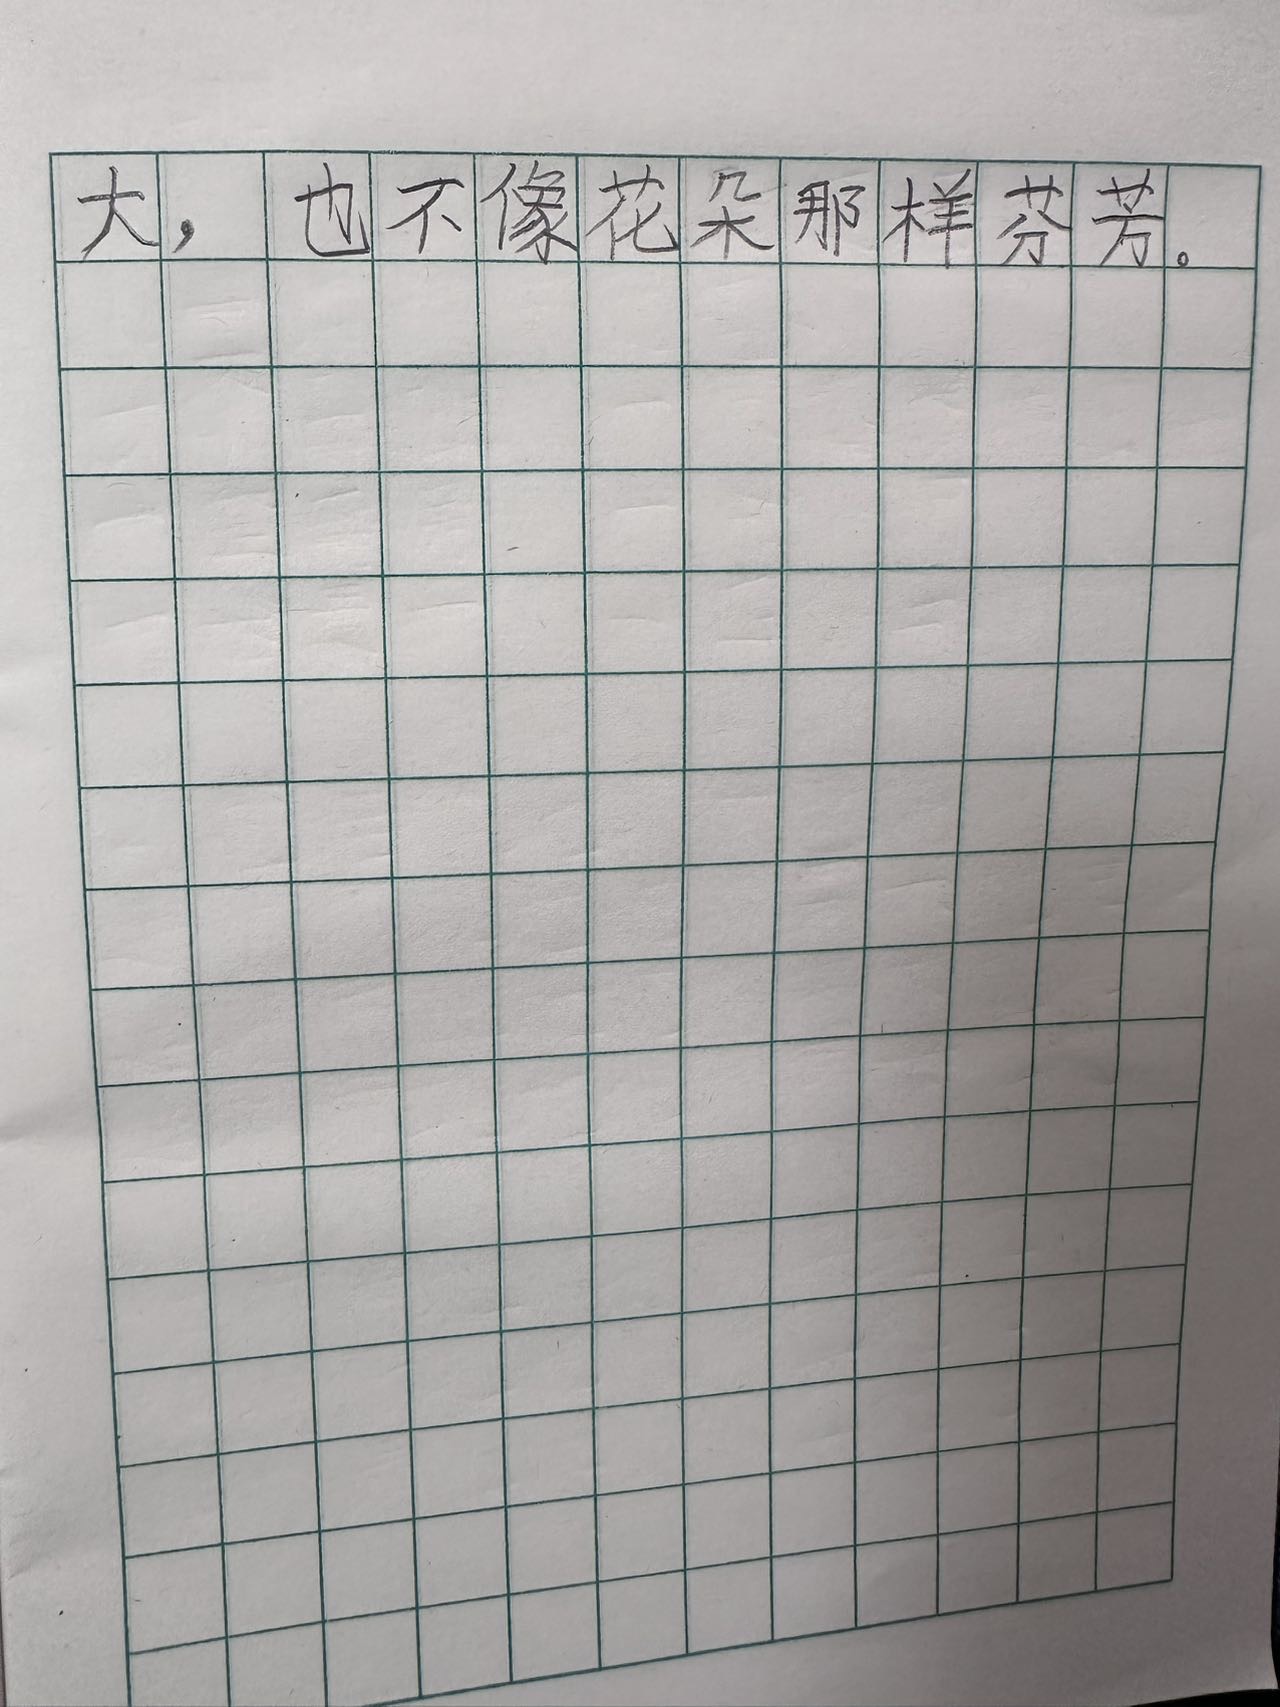 大，也不像花朵那样芬芳。